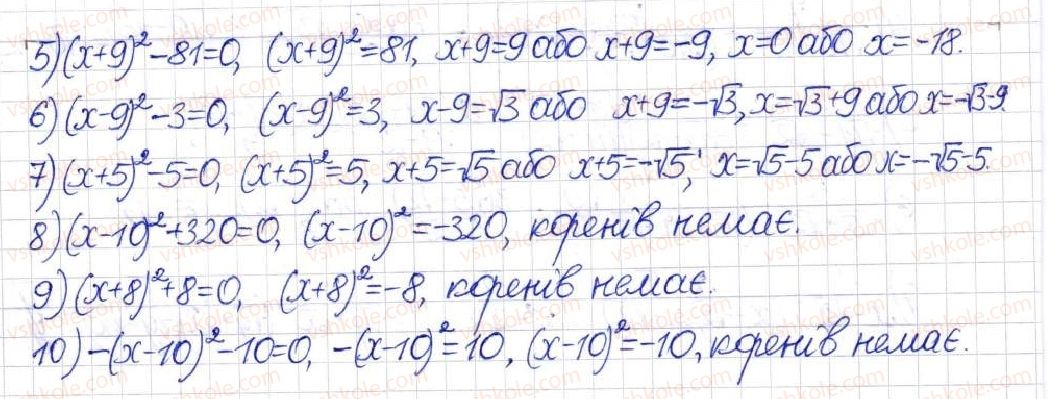 5) (x+9)²-81=0, (x+9)²=81, x+9=9 або x+9=-9, x=0 або x=-18.
6) (x-9)²-3=0, (x-9)²=3, x-9=√3 або x+9=-√3, x=√3+9 або x=-√3-9.
7) (x+5)²-5=0, (x+5)²=5, x+5=√5 або x+5=-√5, x=√5-5 або x=-√5-5.
8) (x-10)²+320=0, (x-10)²=-320, коренів немає.
9) (x+8)²+8=0, (x+8)²=-8, коренів немає.
10) -(x-10)²-10=0, -(x-10)²=10, (x-10)²=-10, коренів немає.